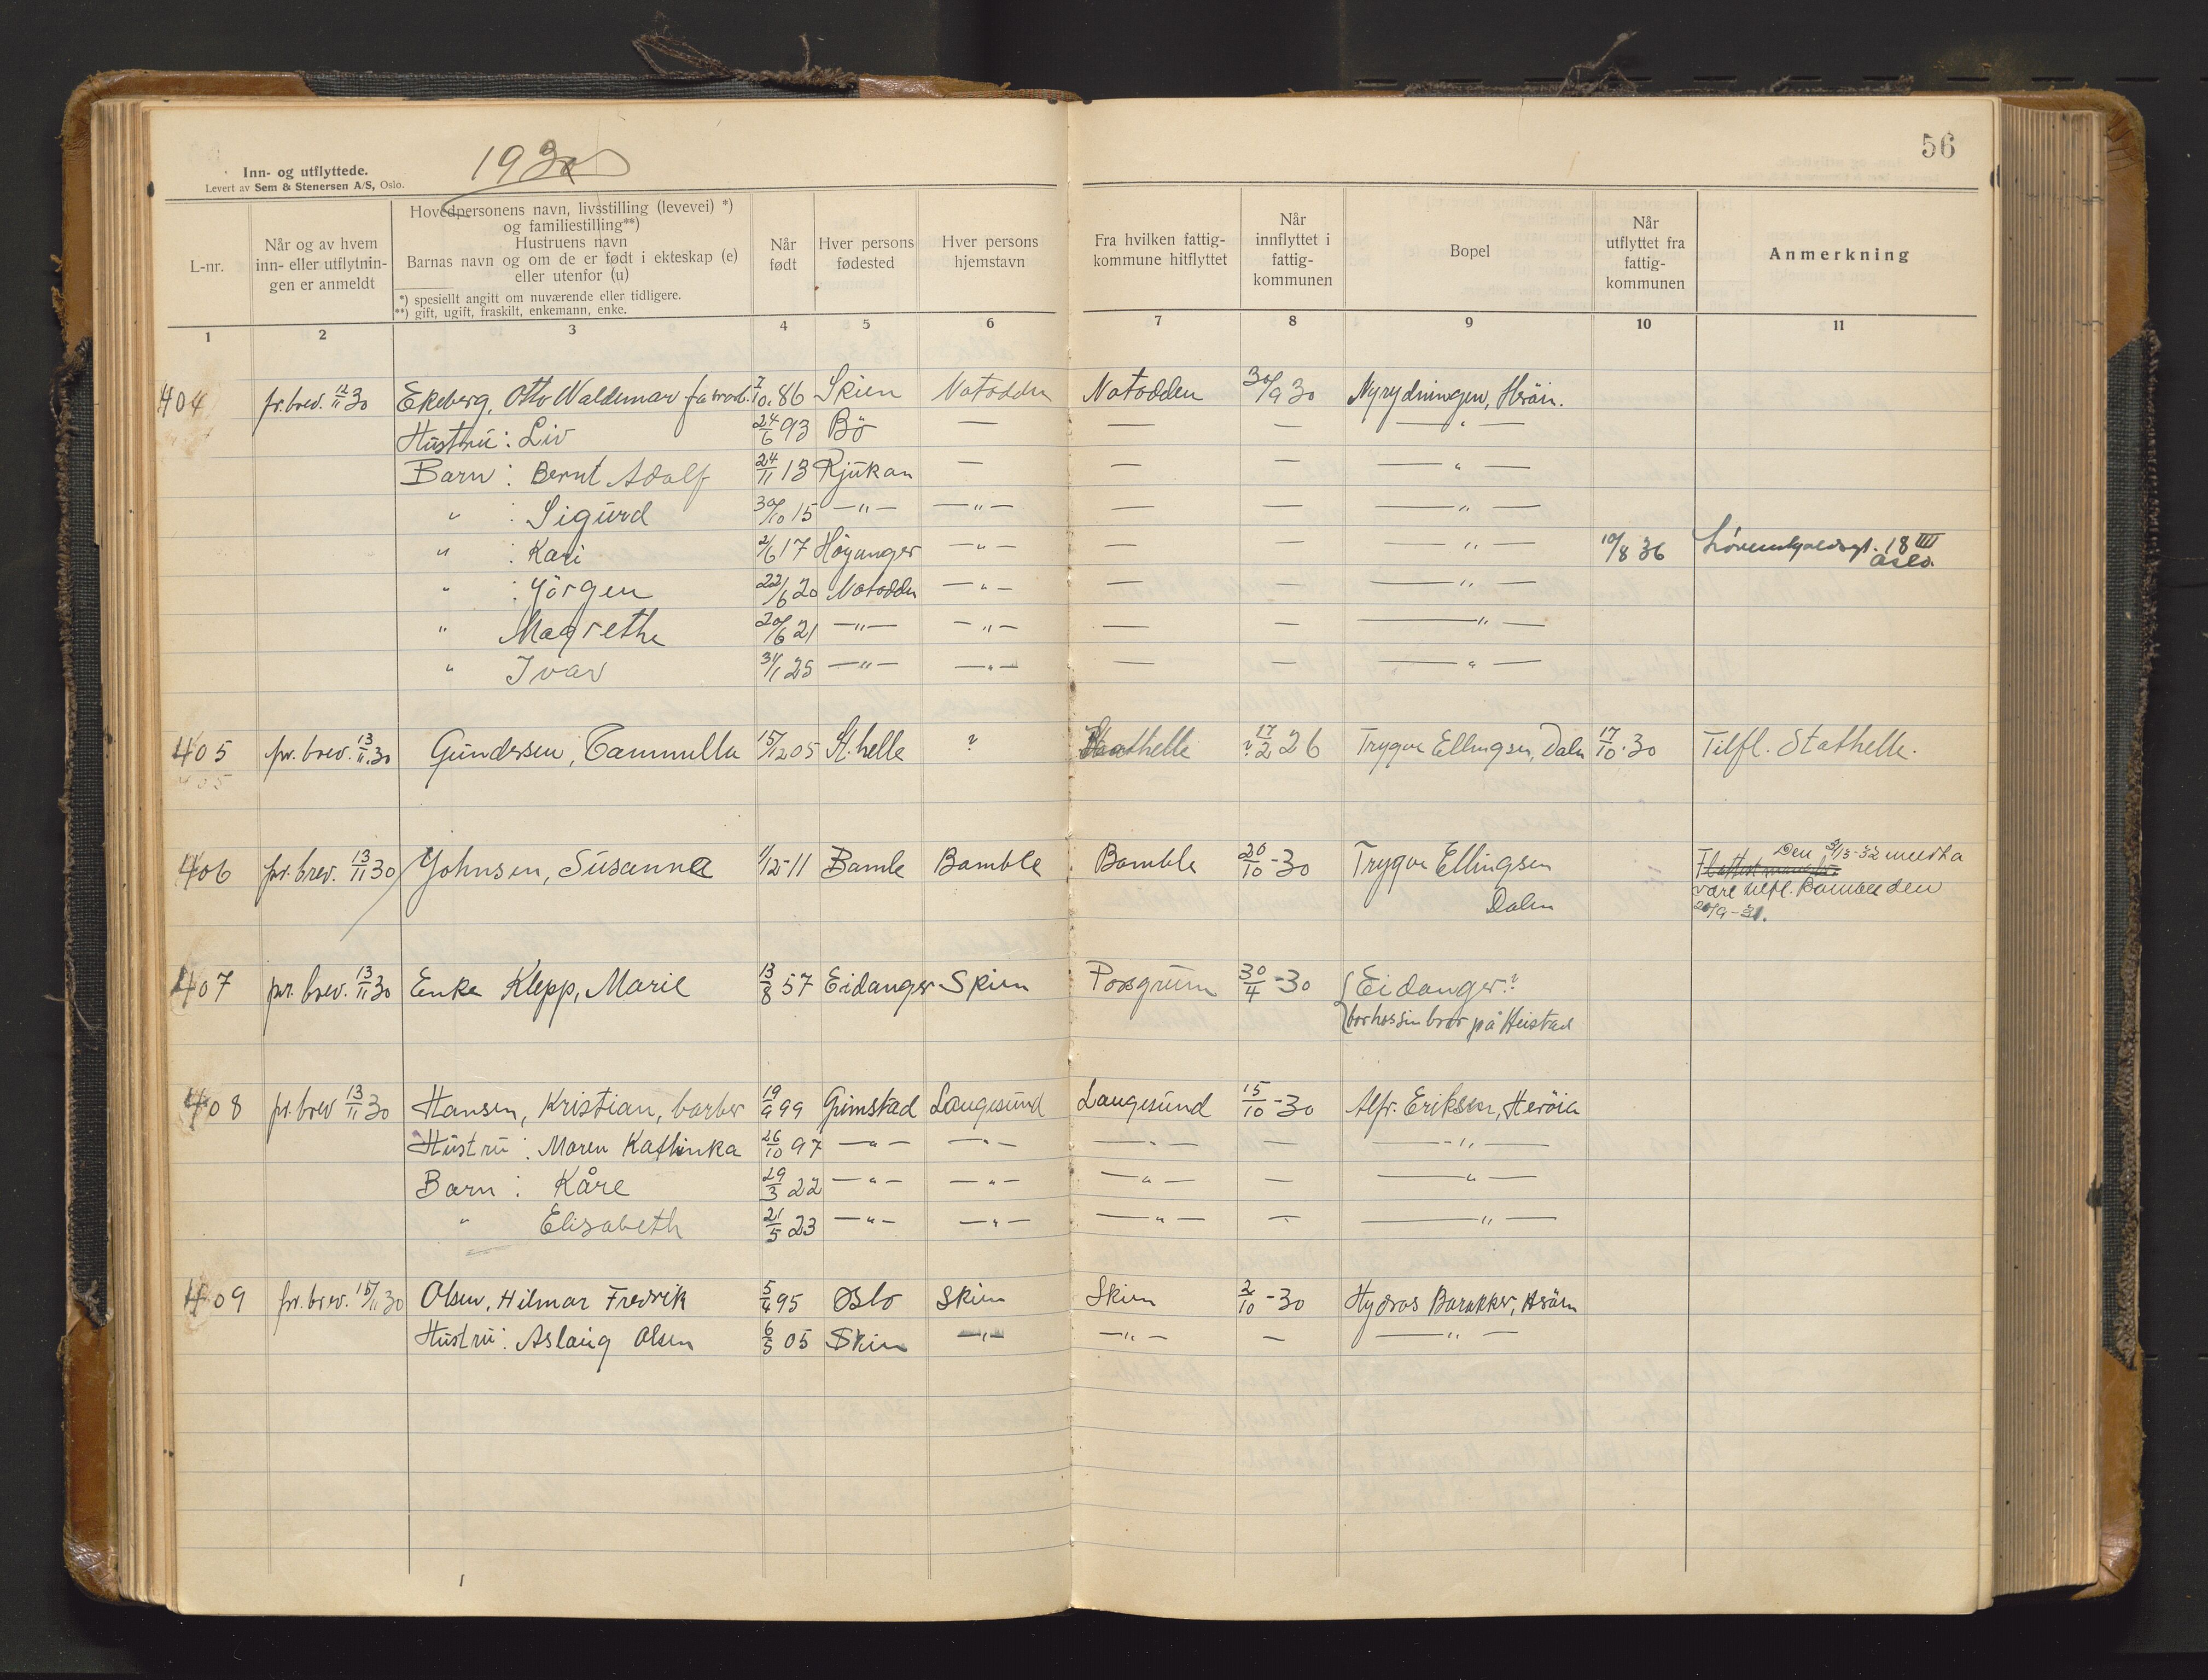 56
Inn- og utflyttede.
Levert av Sem & Stenersen A/S, Oslo.
1930
L-nr.
Når og av hvem inn- eller utflytnin-gen er anmeldt
Hovedpersonens navn, livsstilling (levevei) *) og familiestilling**)
Hustruens navn
Barnas navn og om de er født i ekteskap (e) eller utenfor (u)
*) spesielt angitt om nuværende eller tidligere.
**) gift, ugift, fraskilt, enkemann, enke.
Når født
Hver persons fødested
Hver persons hjemstavn
Fra hvilken fattig-kommune hitflyttet
Når innflyttet i fattig-kommunen
Bopel
Når utflyttet fra fattig-kommunen
Anmerkning
1 2 3 4 5 6 7 8 9 10 11
404 pr. brev. 12/11 30 Ekeberg, Otto Waldemar fabrarb. 7/10 86 Skien Notodden Notodden 30/9 30 Nyrydningen, Heröin.
Hustru: Liv 24/6 93 Bö — — — — " —
Barn: Bernt Adolf 24/11 13 Rjukan — — — — " —
" : Sigurd 30/10 15 — " — — " — — — — " —
" : Kari 2/6 17 Höyanger — " — — — — " — 10/8 36 Løvenskjoldsgt. 18 III Oslo
" : Jörgen 22/6 20 Notodden — " — — — — " —
" Magrethe 20/6 21 — " — — " — — — — " —
" Ivar 31/1 25 — " — — " — — — — " —
405 pr. brev. 13/11 30 Gundersen, Cammilla 15/12 05 St. helle ? Stathelle ? 17/2 26 Trygve Ellingsen, Dalen 17/10 30 Tilfl. Stathelle.
406 pr. brev. 13/11 30 Johnsen, Susanna 1/12-11 Bamle Bamble Bamble 20/10-30 Trygve Ellingsen Dalen
Den 3/3-32 meldt a
være utfl. Bamble den
20/9-31.
407 pr. brev. 13/11 30 Enke Klepp, Marie 13/8 57 Eidanger Skien Porsgrunn 30/4-30 Eidanger?
bor hos sin bror på Heistad
408 pr. brev 13/11 30 Hansen, Kristian, barber 19/9 99 Grimstad Langesund Langesund 15/10-30 Alfr. Eriksen, Heröia
Hustru: Maren Kathinka 26/10 97 — " — — " — — " — — — " —
Barn: Kåre 29/3 22 — " — — " — — " — — — " —
" Elisabeth 21/5 23 — " — — " — — " — — — " —
409 pr. brev. 15/11 30 Olsen, Hilmar Fredrik 5/4 95 Oslo Skien Skien 2/10-30 Hydros Barakker, Heröen
Hustru: Aslaug Olsen 6/5 05 Skien — " — — " — — — " —